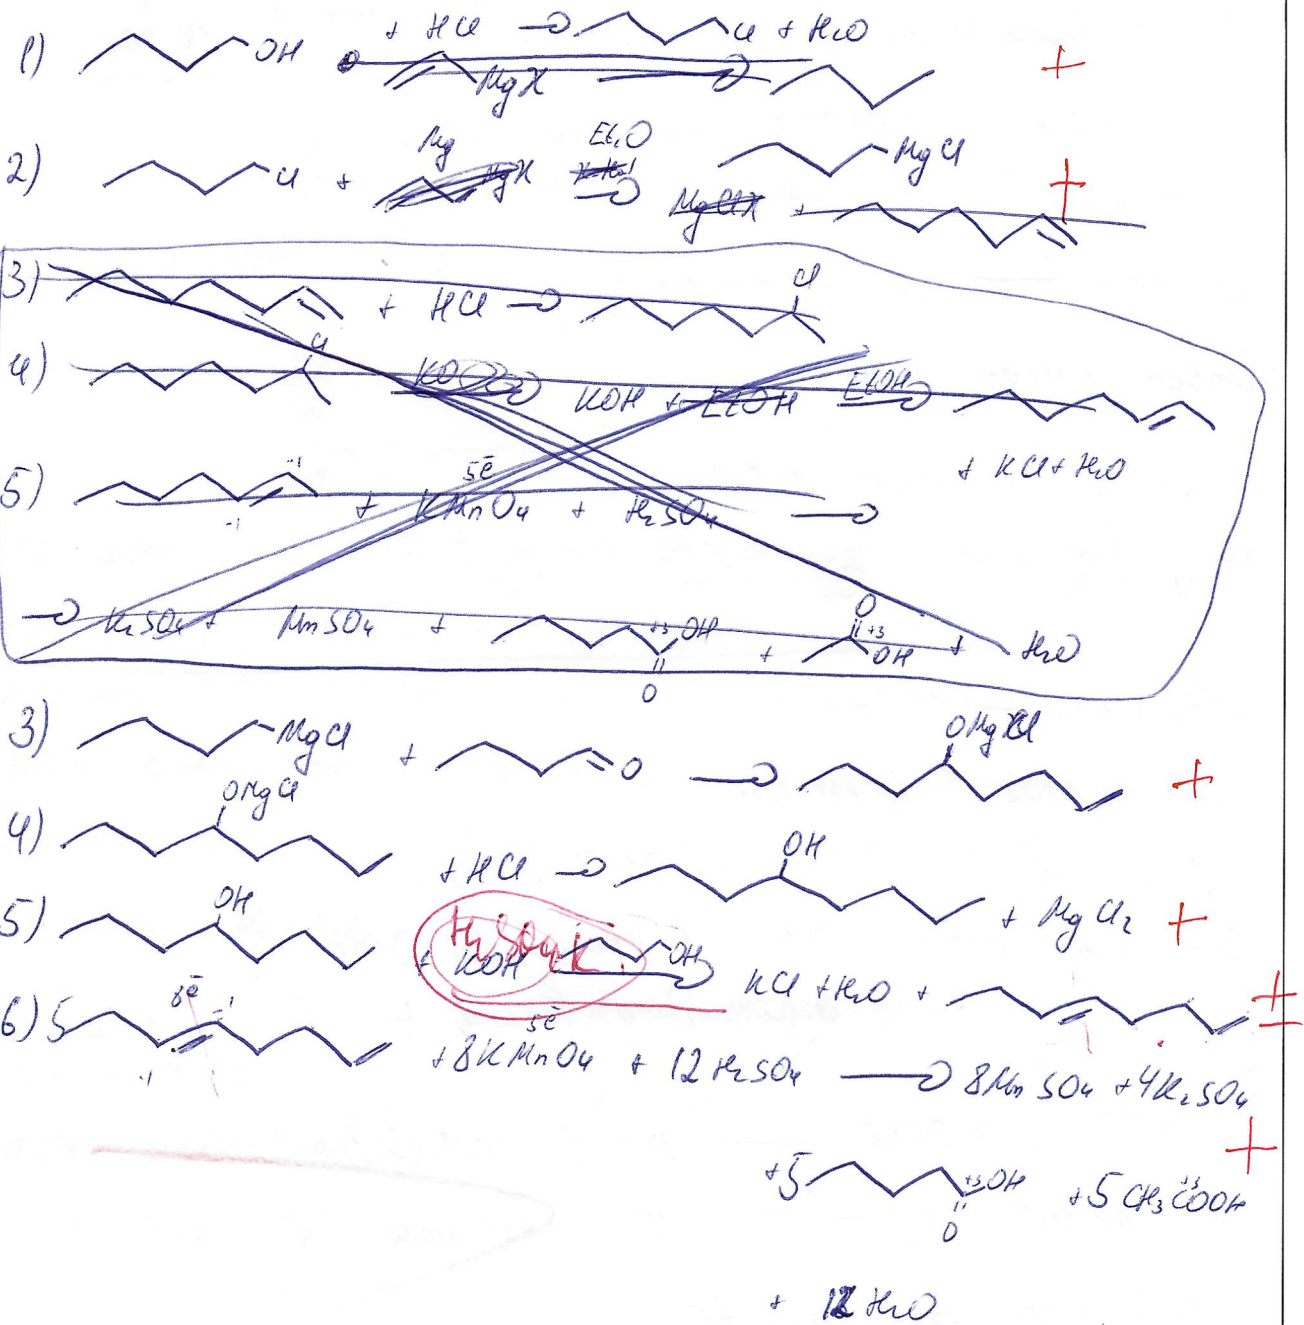 1) OH + HCl → Cl + H₂O +
MgX →
2) Cl + Mg Et₂O → MgCl +
MgX +
3) + HCl → Cl
4) Cl KOH + EtOH EtOH →
+ KCl + H₂O
5) -1 -1 + 5ē KMnO₄ + H₂SO₄ →
→ K₂SO₄ + MnSO₄ + +3 OH O + O +3 OH + H₂O
3) MgCl + O → OMgCl +
4) OMgCl + HCl → OH + MgCl₂ +
5) OH + KOH H₂SO₄ к. OH → KCl + H₂O + ±
6) 5 8ē -1 -1 + 5ē 8KMnO₄ + 12H₂SO₄ → 8MnSO₄ + 4K₂SO₄
+
+5 +3 OH O +5CH₃C̈OOH +3
+ 12 H₂O